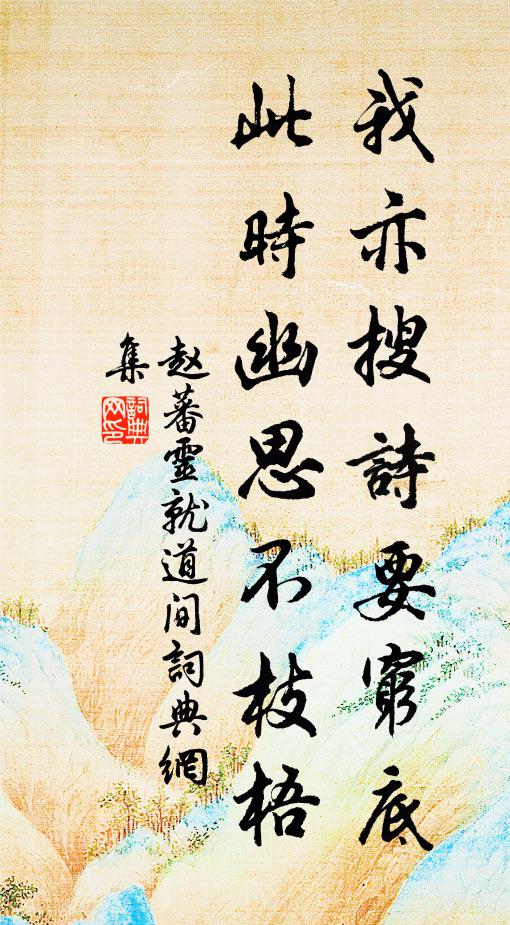 我亦搜詩要窮底
此時幽思不枝梧
赵蕃靈就道间詞典網
集
詞典網印